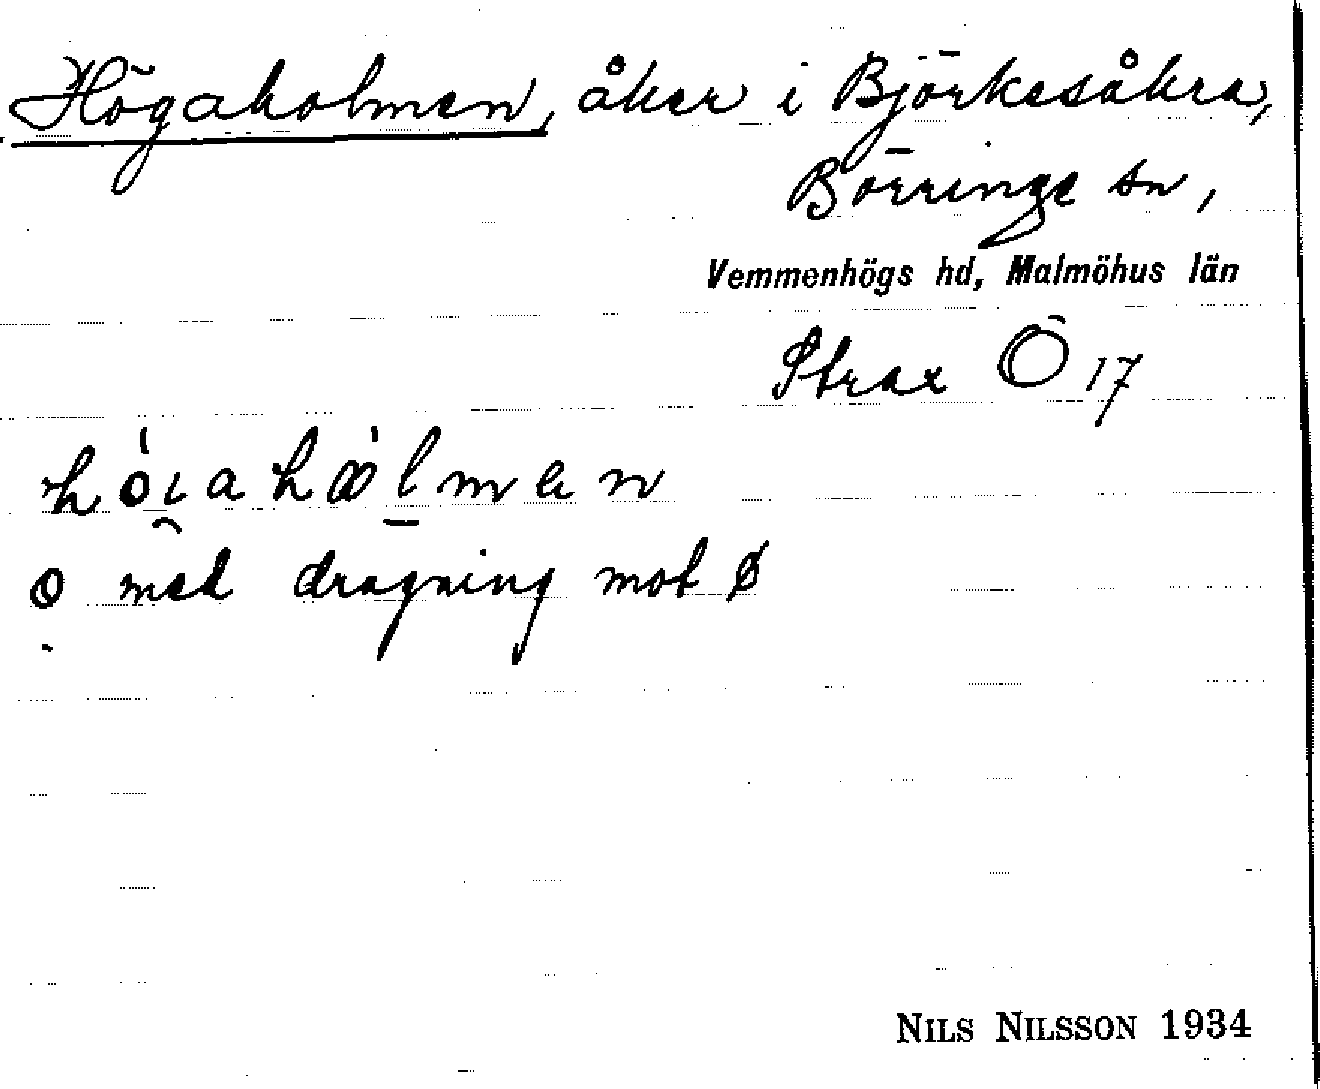 Högaholmen, åker i Björkesåkra,
Börringe sn,
Vemmenhögs hd, Malmöhus län
Strax Ö 17
hòɩahòlmen
o med dragning mot ø
NILS NILSSON 1934